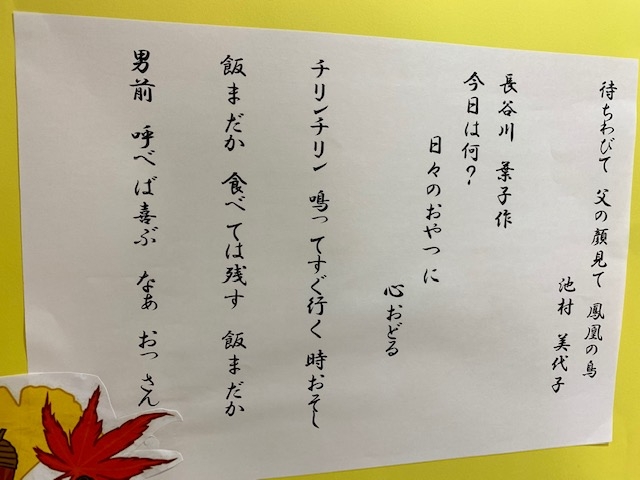 待ちわびて 父の顔見て 鳳凰の鳥
池村 美代子
長谷川 葉子作
今日は何?
日々のおやつに
心おどる
チリンチリン 鳴ってすぐ行く 時おそし
飯まだか 食べては残す 飯まだか
男前 呼べば喜ぶ なぁ おっさん